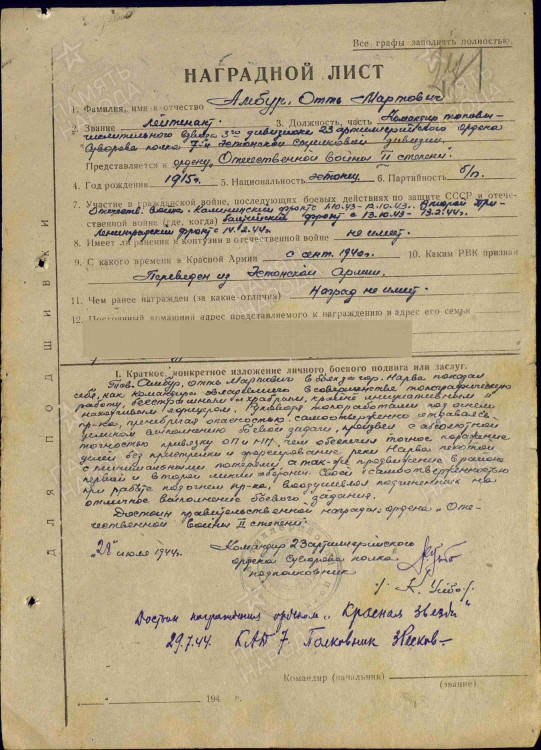 Все графы заполнять полностью.
НАГРАДНОЙ ЛИСТ
1. Фамилия, имя и отчество Амбур, Отть Мартович
2. Звание лейтенант. 3. Должность, часть Командир топовы-
числительного взвода 3го дивизиона 23 артиллерийского ордена
Суворова полка 7-й Эстонской Стрелковой дивизии.
Представляется к ордену "Отечественной войны II степени".
4. Год рождения 1915г. 5. Национальность эстонец 6. Партийность б/п.
7. Участие в гражданской войне, последующих боевых действиях по защите СССР и отече-
ственной войне (где, когда) Отечеств. война. Калининский фронт с 1.10.43 - 12.10.43. Второй При-
балтийский фронт с 13.10.43 - 13.2.44г.
Ленинградский фронт с 14.2.44г.
8. Имеет ли ранения и контузии в отечественной войне не имеет.
9. С какого времени в Красной Армии с сент. 1940г. 10. Каким РВК призван
Переведен из Эстонской Армии.
11. Чем ранее награжден (за какие отличия) Наград не имеет.
12. Постоянный домашний адрес представляемого к награждению и адрес его семьи
I. Краткое, конкретное изложение личного боевого подвига или заслуг.
Тов. Амбур, Отть Мартович в боях за гор. Нарва показал
себя, как командир обладающего в совершенстве топографическую
работу, бесстрашным и храбрым, крайне инициативным и
находчивым офицером. Руководя топоработами под огнем
пр-ка, пренебрегая опасностью, самоотверженно
выполнению боевой задачи, произвел с абсолютной
точностью привязку ОП и НП, чем обеспечил точное поражение
целей без пристрелки и форсирование реки Нарва пехотой
с минимальными потерями, а так-же продвижение в район
первой и второй линии обороны. Своей самоотверженностью
при работе под огнем пр-ка, воодушевлял подчиненных на
отличное выполнение боевого задания.
Достоин правительственной награды ордена "Оте-
чественной войны II степени".
"28" июля 1944г. Командир 23 артиллерийского
ордена Суворова полка
подполковник
Достоин награждения орденом "Красная Звезда"
29.7.44. КАД 7 Полковник
Командир (начальник)
(звание)
194 г.
ДЛЯ ПОДШИВКИ
ПАМЯТЬ НАРОДА